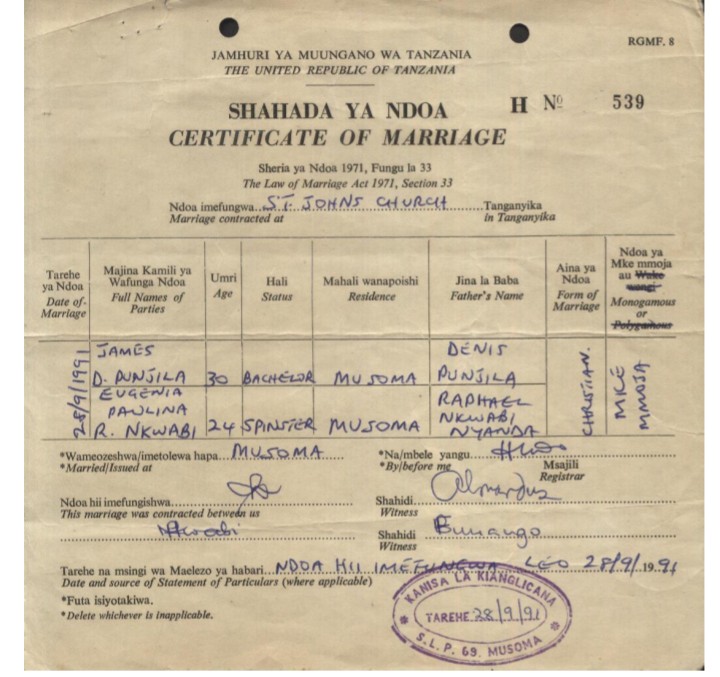 RGMF. 8
JAMHURI YA MUUNGANO WA TANZANIA
THE UNITED REPUBLIC OF TANZANIA
SHAHADA YA NDOA H Nº 539
CERTIFICATE OF MARRIAGE
Sheria ya Ndoa 1971, Fungu la 33
The Law of Marriage Act 1971, Section 33
Ndoa imefungwa ST. JOHNS CHURCH Tanganyika
Marriage contracted at in Tanganyika
Tarehe ya Ndoa Date of Marriage
Majina Kamili ya Wafunga Ndoa Full Names of Parties
Umri Age
Hali Status
Mahali wanapoishi Residence
Jina la Baba Father's Name
Aina ya Ndoa Form of Marriage
Ndoa ya Mke mmoja au Wake wengi Monogamous or Polygamous
28/9/1991
JAMES D. PUNJILA 30 BACHELOR MUSOMA DENIS PUNJILA
EUGENIA PAULINA R. NKWABI 24 SPINSTER MUSOMA RAPHAEL NKWABI NYANDA
CHRISTIAN.
MKE MMOJA
*Wameozeshwa/imetolewa hapa MUSOMA *Na/mbele yangu
*Married/Issued at *By/before me Msajili
Registrar
Ndoa hii imefungishwa Shahidi
This marriage was contracted between us Witness
Nkwabi Shahidi Bunango
Witness
Tarehe na msingi wa Maelezo ya habari NDOA HII IMEFUNGWA LEO 28/9/1991
Date and source of Statement of Particulars (where applicable)
*Futa isiyotakiwa.
*Delete whichever is inapplicable.
KANISA LA KIANGLICANA
TAREHE 28/9/91
S.L.P. 69. MUSOMA